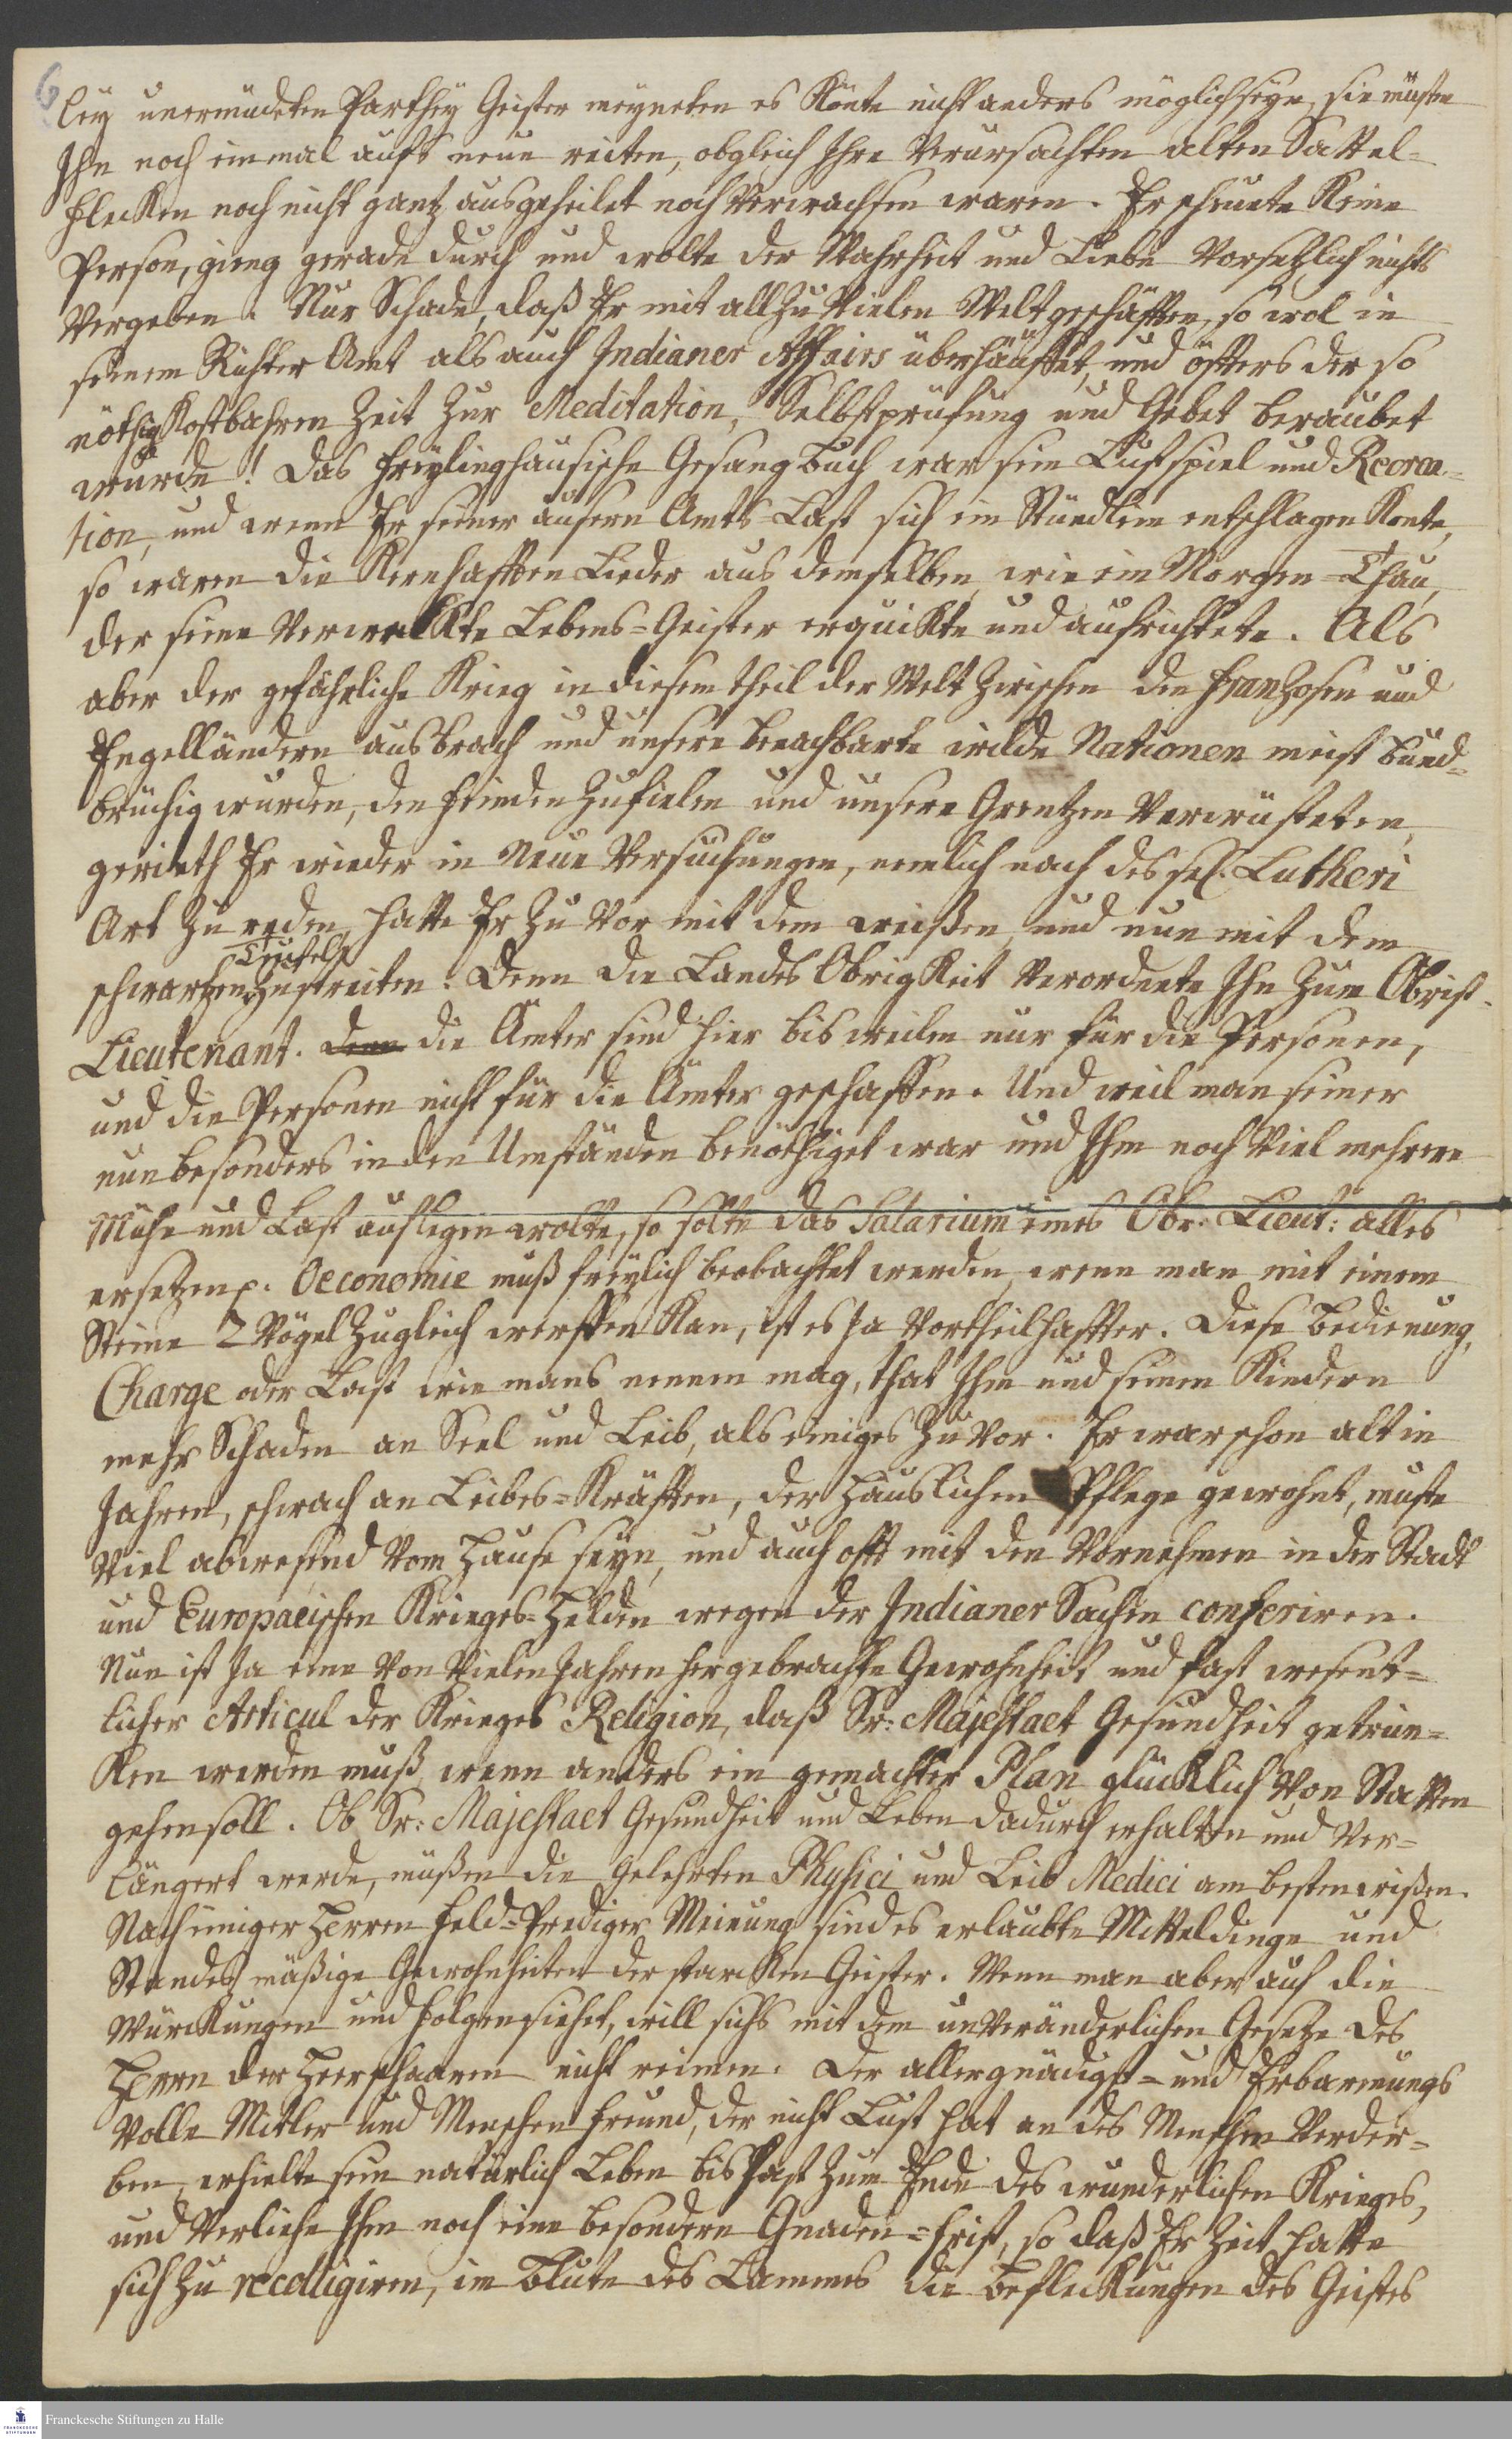 6
ley unermüdeten Parthey Geister meyneten es Könte nicht anders möglich seyn, sie müsten
Ihn noch einmal aufs neue reiten, obgleich Ihre Verursachten alten Sattel-
flecken noch nicht gantz ausgeheilet noch Verwachsen waren. Er scheuete Keine
Person, gieng gerade durch und wolte der Wahrheit und Liebe Vorsetzlich nichts
Vergeben. Nur Schade, daß Er mit allzu Vielen Welt geschäfften, so wol in
seinem Richter Amt als auch Indianer Affairs überhäuffet, und öffters der so
nöthig Kostbahren Zeit zur Meditation, Selbstprüfung und Gebet beraubet
wurde! Das freylinghausische Gesang buch war sein Lustspiel und Recrea-
tion, und wenn Er seiner äusern Amts-Last sich ein Stündlein entschlagen Konte,
so waren die Kernhafften Lieder aus demselben, wie ein Morgen-Thau,
der seine VerwelKte Lebens-Geister erquikte und aufrichtete. Als
aber der gefährliche Krieg in diesem theil der Welt zwischen den franzosen und
Engelländern ausbrach und unsere benachbarte wilde Nationen meist bund-
brüchig wurden, den feinden zufielen und unsere Grentzen Verwüsteten,
gerieth Er wieder in Neue Versuchungen, nemlich nach des sel. Lutheri
Art zu reden, hatte Er zu Vor mit dem weißen, und nun mit dem
Teufel
schwartzen zu streiten. Denn die Landes Obrigkeit Verordnete Ihn zum Obrist-
Lieutenant. Denn die Ämter sind hier bis weilen nur für die Personen,
und die Personen nicht für die Ämter geschaffen. Und weil man seiner
nun besonders in den Umständen benöthiget war und Ihm noch Viel mehrere
Mühe und Last auflegen wolte, so solte das Salarium eines Obr: Lieut: alles
ersetzen p. Oeconomie muß freylich beobachtet werden, wenn man mit einem
Steine 2 Vögel zugleich werffen Kan, ist es Ja Vortheilhaffter. Diese Bedienung,
Charge oder Last wie mans nennen mag, that Ihm und seinen Kindern
mehr Schaden an Seel und Leib, als einiges zuVor. Er war schon alt in
Jahren, schwach an Leibes-Kräfften, der Häuslichen Pflege gewohnt, muste
Viel abwesend Vom Hause seyn, und auch offt mit den Vornehmen in der Stadt
und Europaeischen Krieges-Helden wegen der Indianer Sachen conferiren.
Nun ist Ja eine Von Vielen Jahren hergebrachte Gewohnheit und fast wesent-
licher Articul der Krieges Religion, daß Sr: Majestaet Gesundheit getrun-
Ken werden muß, wenn anders ein gemachter Plan glücklich Von Statten
gehen soll. Ob Sr: Majestaet Gesundheit und Leben dadurch erhalten und Ver-
längert werde, müßen die Gelehrten Physici und Leib Medici am besten wißen.
Nach einiger Herren feld-Prediger Meinung sind es erlaubte Mitteldinge und
Standes mäßige Gewohnheiten der starcKen Geister. Wenn man aber auf die
WürcKungen und folgen siehet, will sichs mit dem unVeränderlichen Gesetze des
Herrn der Heerschaaren nicht reimen. Der allergnädigst- und Erbarmungs
Volle Mitler und Menschen freund, der nicht Lust hat an des Menschen Verder-
ben, erhielte sein natürlich Leben bis Fast zum Ende des wunderlichen Krieges,
und Verliehe Ihm noch eine besondere Gnaden-frist, so daß Er Zeit hatte
sich zu recolligiren, im Blute des Lammes die BeflecKungen des Geistes
Franckesche Stiftungen zu Halle